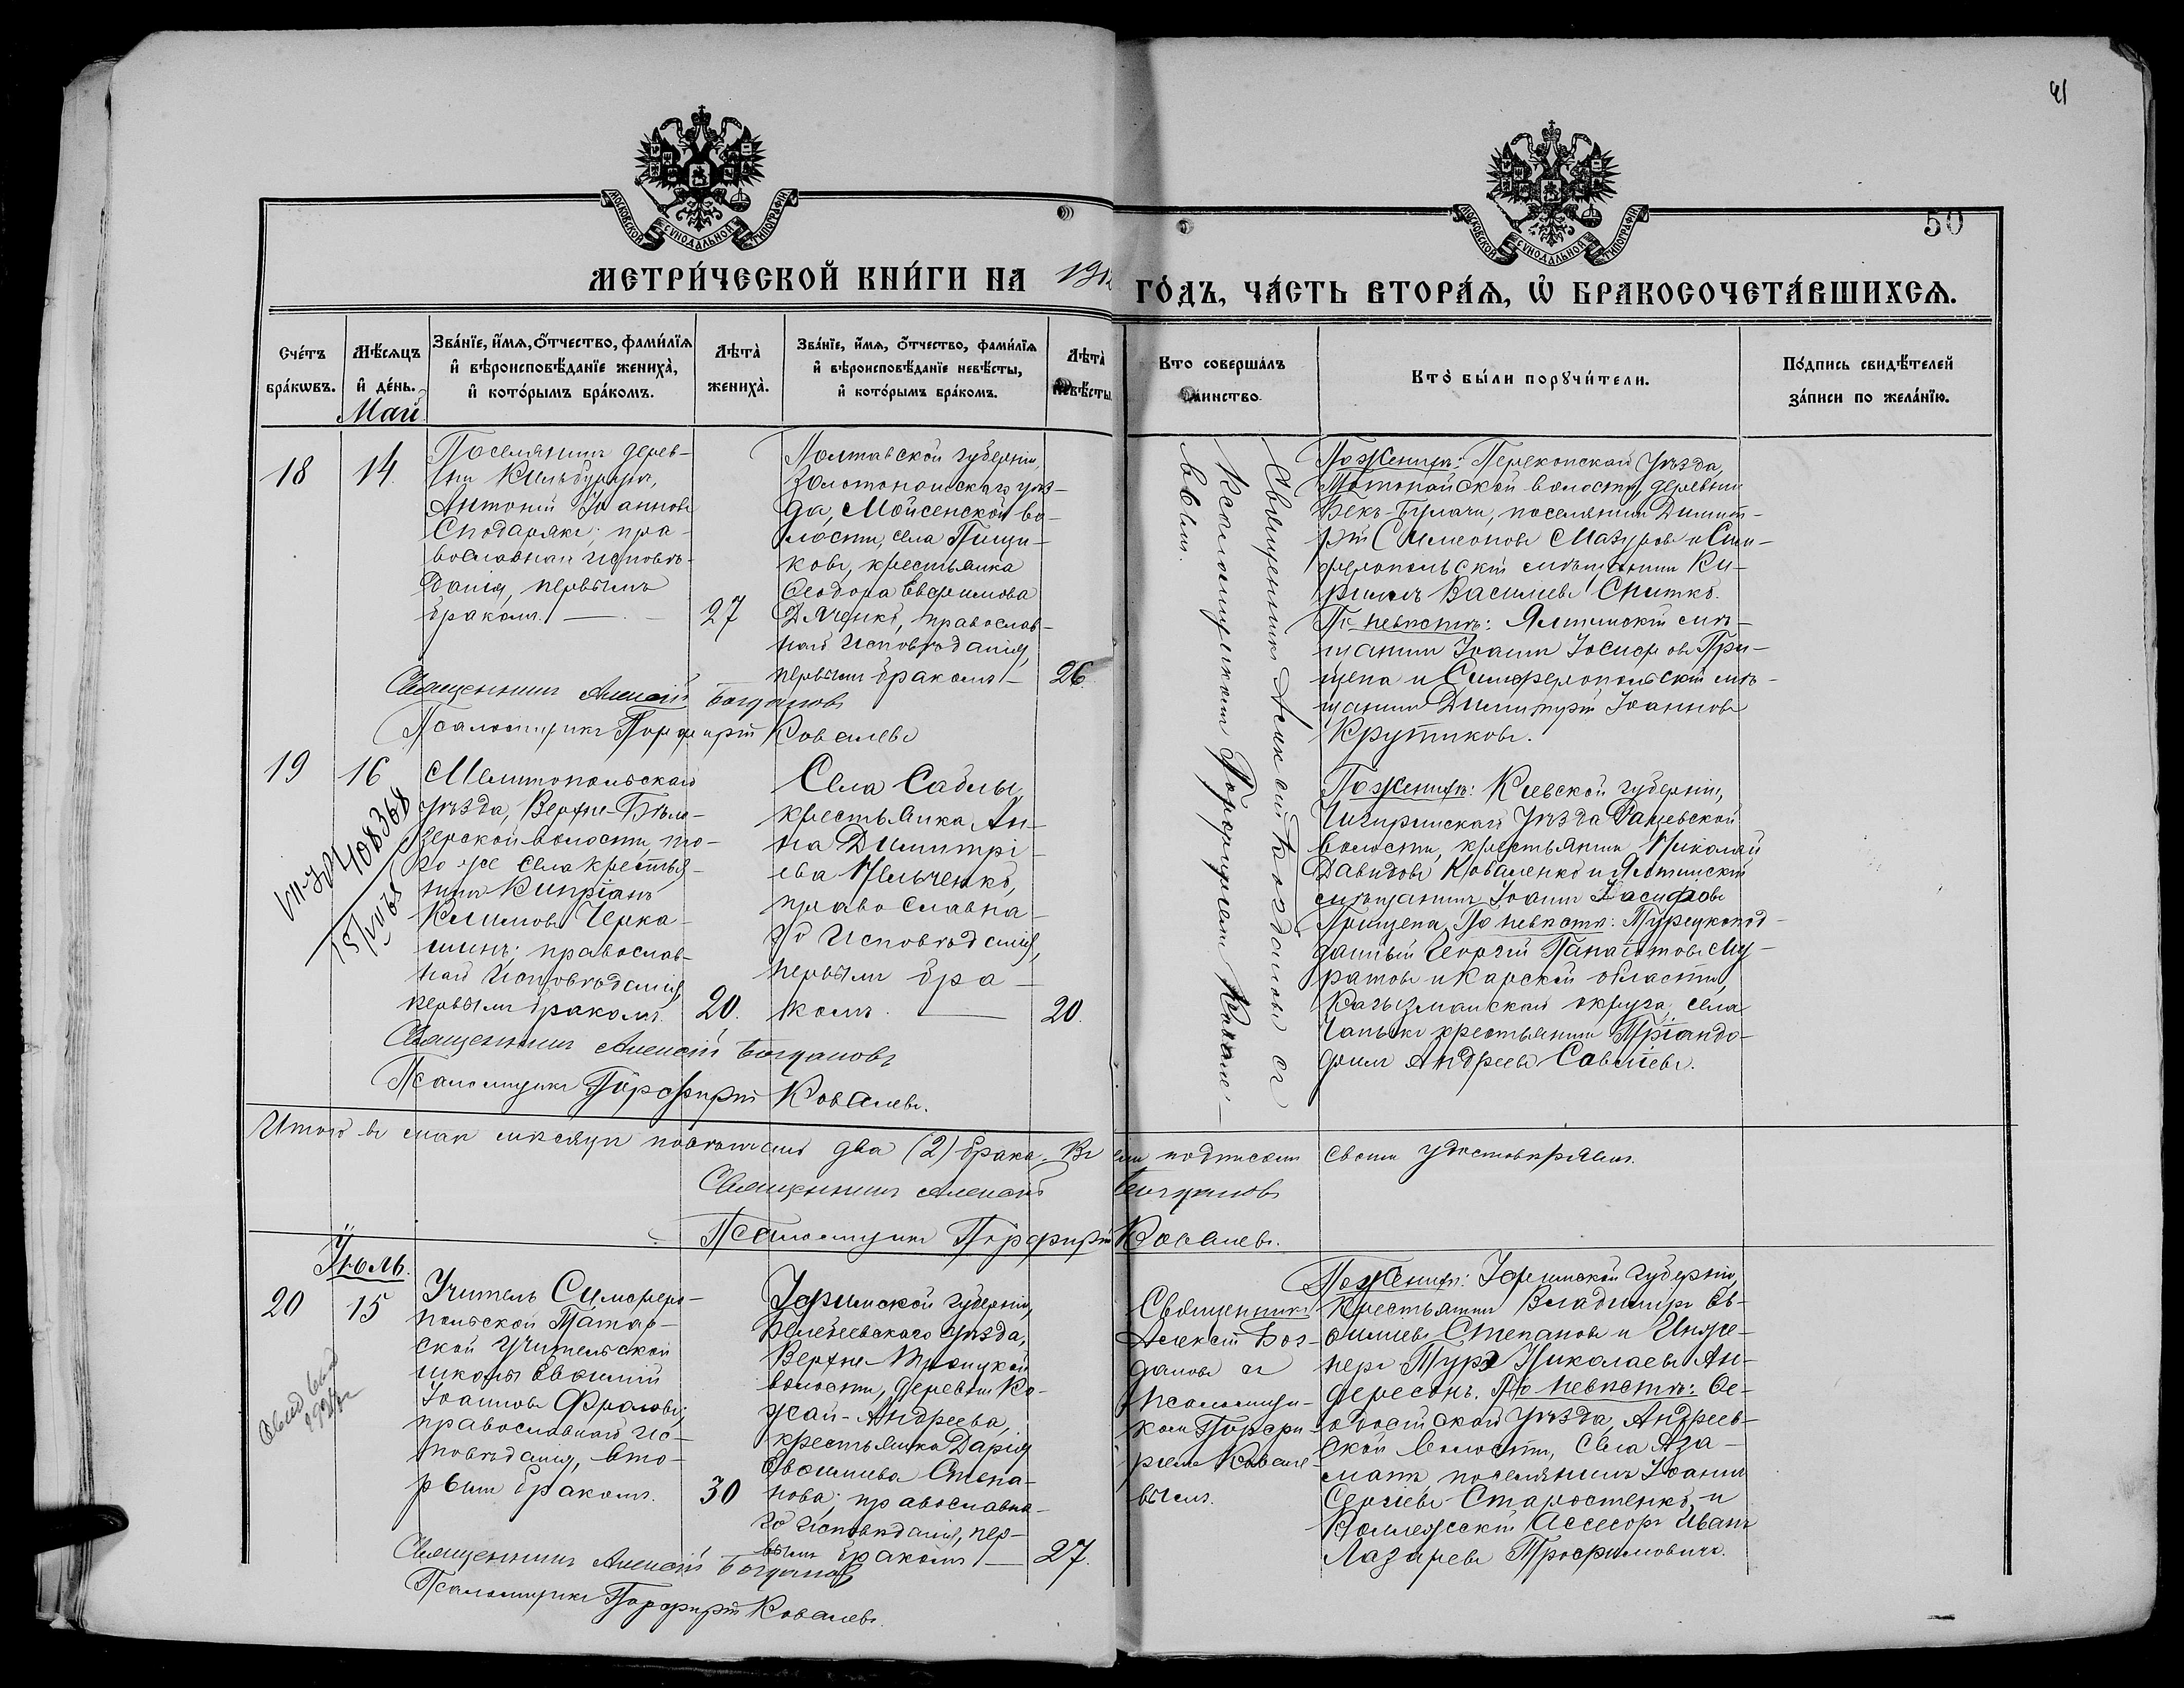 41
50
МОСКОВСКОЙ СѴНОДАЛЬНОЙ ТИПОГРАФІИ
МОСКОВСКОЙ СѴНОДАЛЬНОЙ ТИПОГРАФІИ
МЕТРИ́ЧЕСКОЙ КНИ́ГИ НА 191
ГО́ДЪ, ЧА́СТЬ ВТОРА́Я, Ѡ҆ БРАКОСОЧЕТА́ВШИХСЯ.
Сче́тъ бра́кѡвъ.
Мѣ́сяцъ и҆ де́нь.
Зва́нїе, и҆́мя, ѻ҆́тчество, фами́лїя
и҆ вѣроисповѣ́данїе жениха̀,
и҆ кото́рымъ бра́комъ.
Лѣта̀ жениха̀.
Зва́нїе, и҆́мя, ѻ҆́тчество, фами́лїя
и҆ вѣроисповѣ́данїе невѣ́сты,
и҆ кото́рымъ бра́комъ.
Лѣта̀ невѣ́сты.
Кто соверша́лъ
таинство.
Кто̀ бы́ли порꙋчи́тели.
По́дпись свидѣ́телей
за́писи по жела́нїю.
Май
18
14.
Поселянинъ дерев-
ни
Антоній Іоанновъ
Сподарякъ; пра-
вославнаго исповѣ-
данія, первымъ
бракомъ.
27
Полтавской губерніи,
Золотоношскаго уѣз-
да, Мойсенской во-
лости, села Пищи-
ковъ, крестьянка
Ѳеодора Евфимова
Дяченко, православ-
наго исповѣданія,
первымъ бракомъ
26.
Священникъ Алексій Богдановъ съ
псаломщикомъ Порфиріемъ Ковале-
вымъ.
По женихѣ: Перекопскаго уѣзда,
волости, деревни
Бекъ-Булачи, поселянинъ Димит-
рій Симеоновъ Мазуровъ и Сим-
феропольскій мѣщанинъ Ки-
риллъ Василіевъ Снитко.
По невѣстѣ: Ялтинскій мѣ-
щанинъ Іоаннъ Іосифовъ При-
щепа и Симферопольскій мѣ-
щанинъ Димитрій Іоанновъ
Крутиковъ.
Священникъ Алексій Богдановъ
Псаломщикъ Порфирій Ковалевъ
19
16
408368
Мелитопольскаго
уѣзда, Верхне-Бѣло-
зерской волости, то-
го же села крестья-
нинъ Кипріанъ
Климовъ Черка-
шинъ; православ-
наго исповѣданія,
первымъ бракомъ.
20.
Села Саблы,
крестьянка Ан-
на Димитрі-
ева Ильченко,
православна-
го исповѣданія,
первымъ бра-
комъ.
20.
По женихѣ: Кіевской губерніи,
Чигиринскаго уѣзда
волости, крестьянинъ Николай
Давидовъ Коваленко и Ялтинскій
мѣщанинъ Іоаннъ Іосифовъ
Прищепа. По невѣстѣ: Турецкопод-
данный Георгій Панаіотовъ Му-
ратовъ и Карской области,
Кагызманскаго округа, села
крестьянинъ Тріандо-
филъ Андреевъ Савѣлѣевъ.
Священникъ Алексій Богдановъ
Псаломщикъ Порфирій Ковалевъ.
Итого въ маѣ мѣсяцѣ повѣнчано два (2) брака. Въ чемъ подписомъ своимъ удостовѣряемъ.
Священникъ Алексій Богдановъ
Псаломщикъ Порфирій Ковалевъ.
Іюль.
20
15
Учитель Симферо-
польской Татар-
ской учительской
школы Евѳимій
Іоанновъ Фроловъ;
православнаго ис-
повѣданія, вто-
рымъ бракомъ.
30
Уфимской губерніи,
Белебеевскаго уѣзда,
Верхне-Троицкой
волости, деревни Ко-
жай-Андреева,
крестьянка Дарія
Евѳиміева Степа-
нова; православна-
го исповѣданія, пер-
вымъ бракомъ
27.
Священникъ
Алексій Бог-
дановъ съ
псаломщи-
комъ Порфи-
ріемъ Ковале-
вымъ.
По женихѣ: Уфимской губерніи,
крестьянинъ Владиміръ Ев-
ѳиміевъ Степановъ и Инже-
неръ Турэ Николаевъ Ан-
дересонъ. По невѣстѣ: Ѳе-
одосійскаго уѣзда, Андреев-
ской волости, села Аза-
матъ поселянинъ Іоаннъ
Сергіевъ Старостенко, и
Коллежскій Ассесоръ Иванъ
Лазаревъ Трофимовичъ.
Священникъ Алексій Богдановъ
Псаломщикъ Порфирій Ковалевъ.